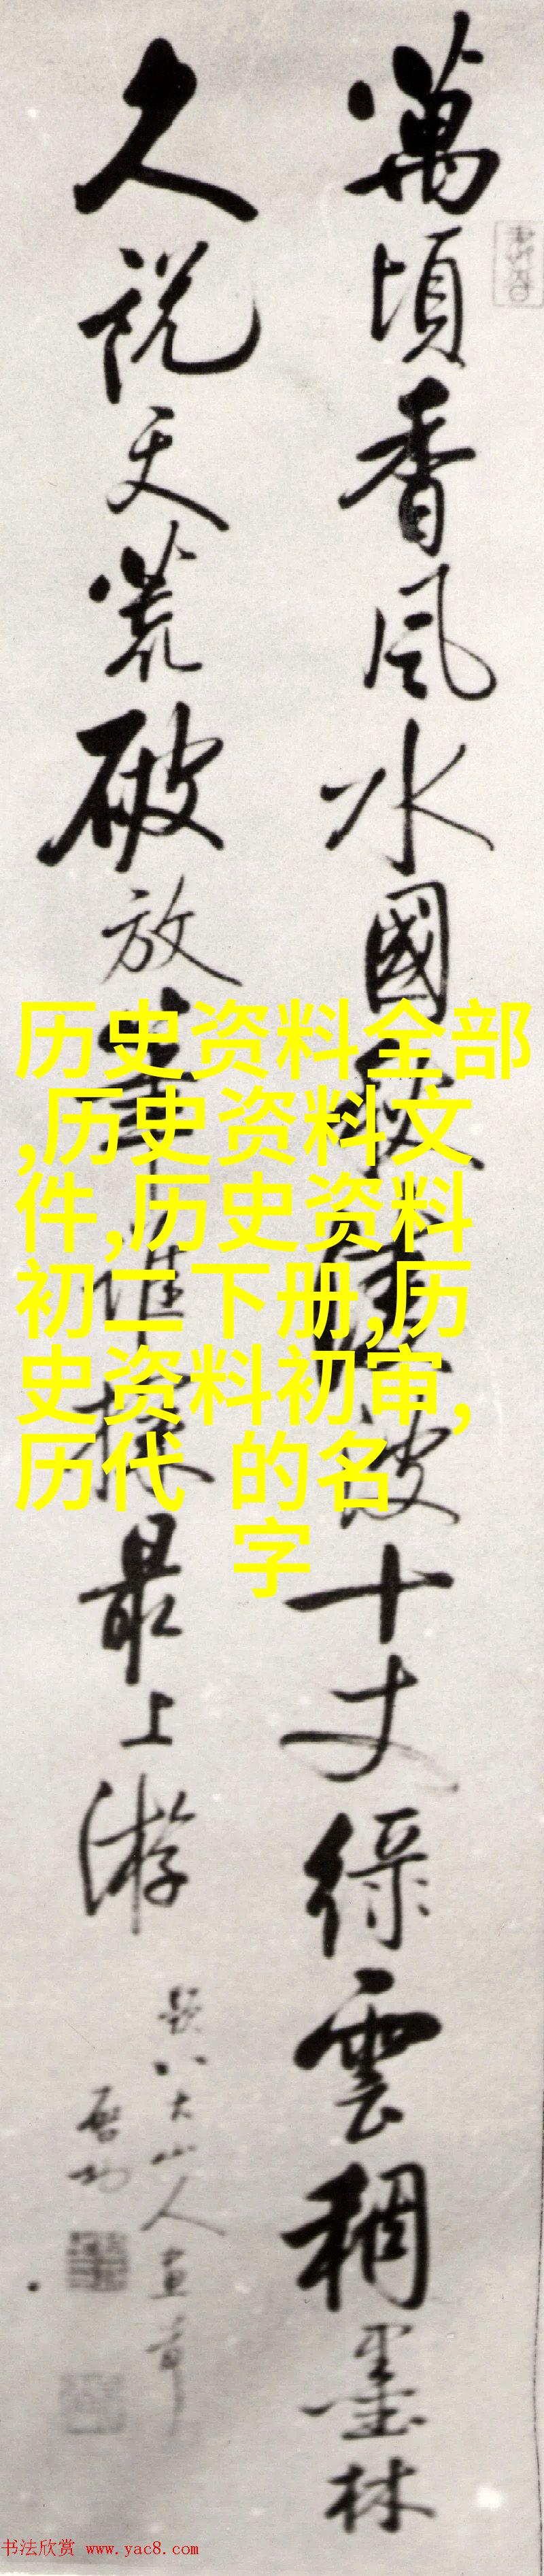 萬頃香風水國秋 波十丈綠雲稠墨林
久説天荒破放筆誰探最上游
題八大山人畫
啓功
历史资料全部
,历史资料文
件,历史资料
初二下册,历
史资料初审,
历代 的名
字
书法欣赏 www.yac8.com